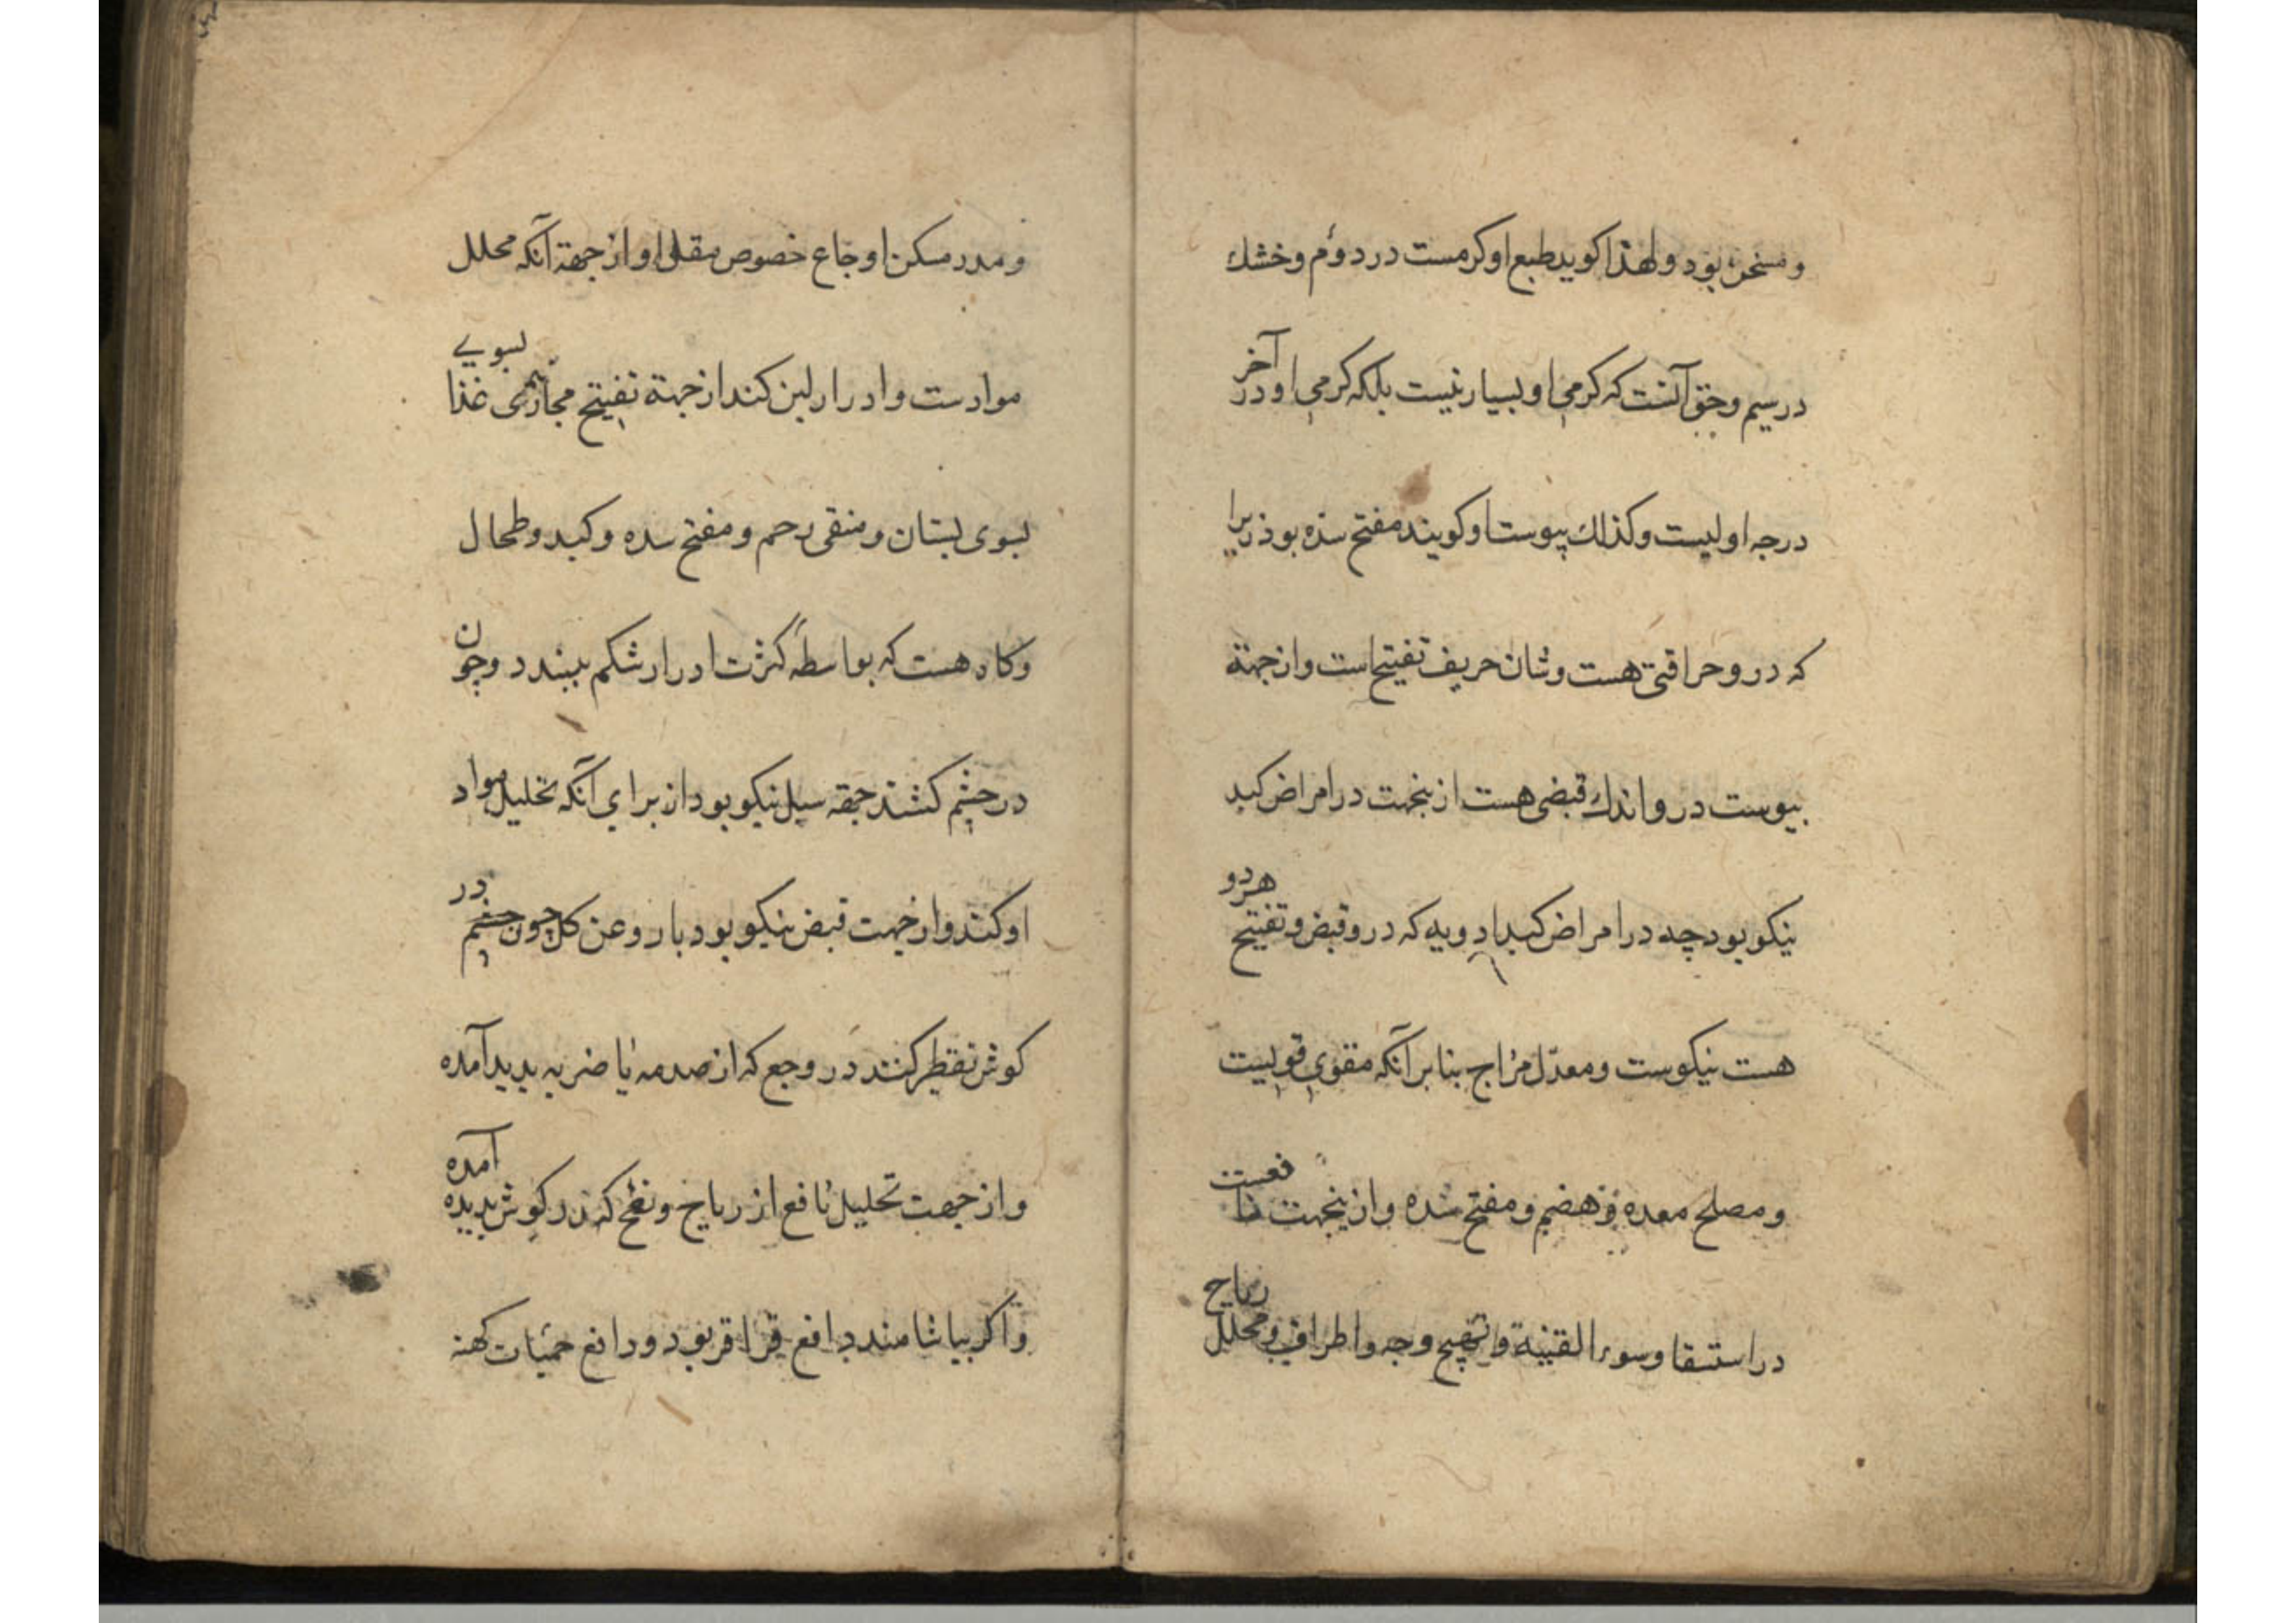 و مسخن بود و لهذا كويند طبع او كرمست در دوم و خشك
در سيم و حق آنست كه كرمي او بسيار نيست بلكه كرمي او در آخر
درجه اوليست و كذلك يبوست او كويند مفتح سده بود زيرا
كه درو حرافتي هست و شان حريف تفتيح است و از جهة
يبوست درو اندك قبضي هست ازينجهت در امراض كبد
نيكو بود چه در امراض كبد ادويه كه درو قبض و تفتيح هردو
هست نيكوست و معدّل مزاج بنا بر آنكه مقوي قويست
و مصلح معده و هضم و مفتح سده و ازينجهت نافعست
در استسقا و سوء القنية و تهيج وجه و اطراف و محلل رياح
و مدر مسكن اوجاع خصوص مقلي او از جهة آنكه محلل
موادست و ادرار لبن كند از جهة تفتيح مجاري غذا بسويے
بسوي پستان و منقي رحم و مفتح سده و كبد و طحال
و كاه هست كه بواسطهٔ كثرت ادرار شكم ببندد و چون
در چشم كشند جهة سبل نيكو بود از براي آنكه تحليل مواد
او كند و از جهت قبض نيكو بود با روغن كل چون چشم در
كوش تقطير كنند در وجع كه از صدمه يا ضربه پديد آمده
و از جهت تحليل نافع از رياح و نفخ كه در كوش پديده آمده
و اكر بياشامند دافع قراقر بود و دافع حميات كهنه